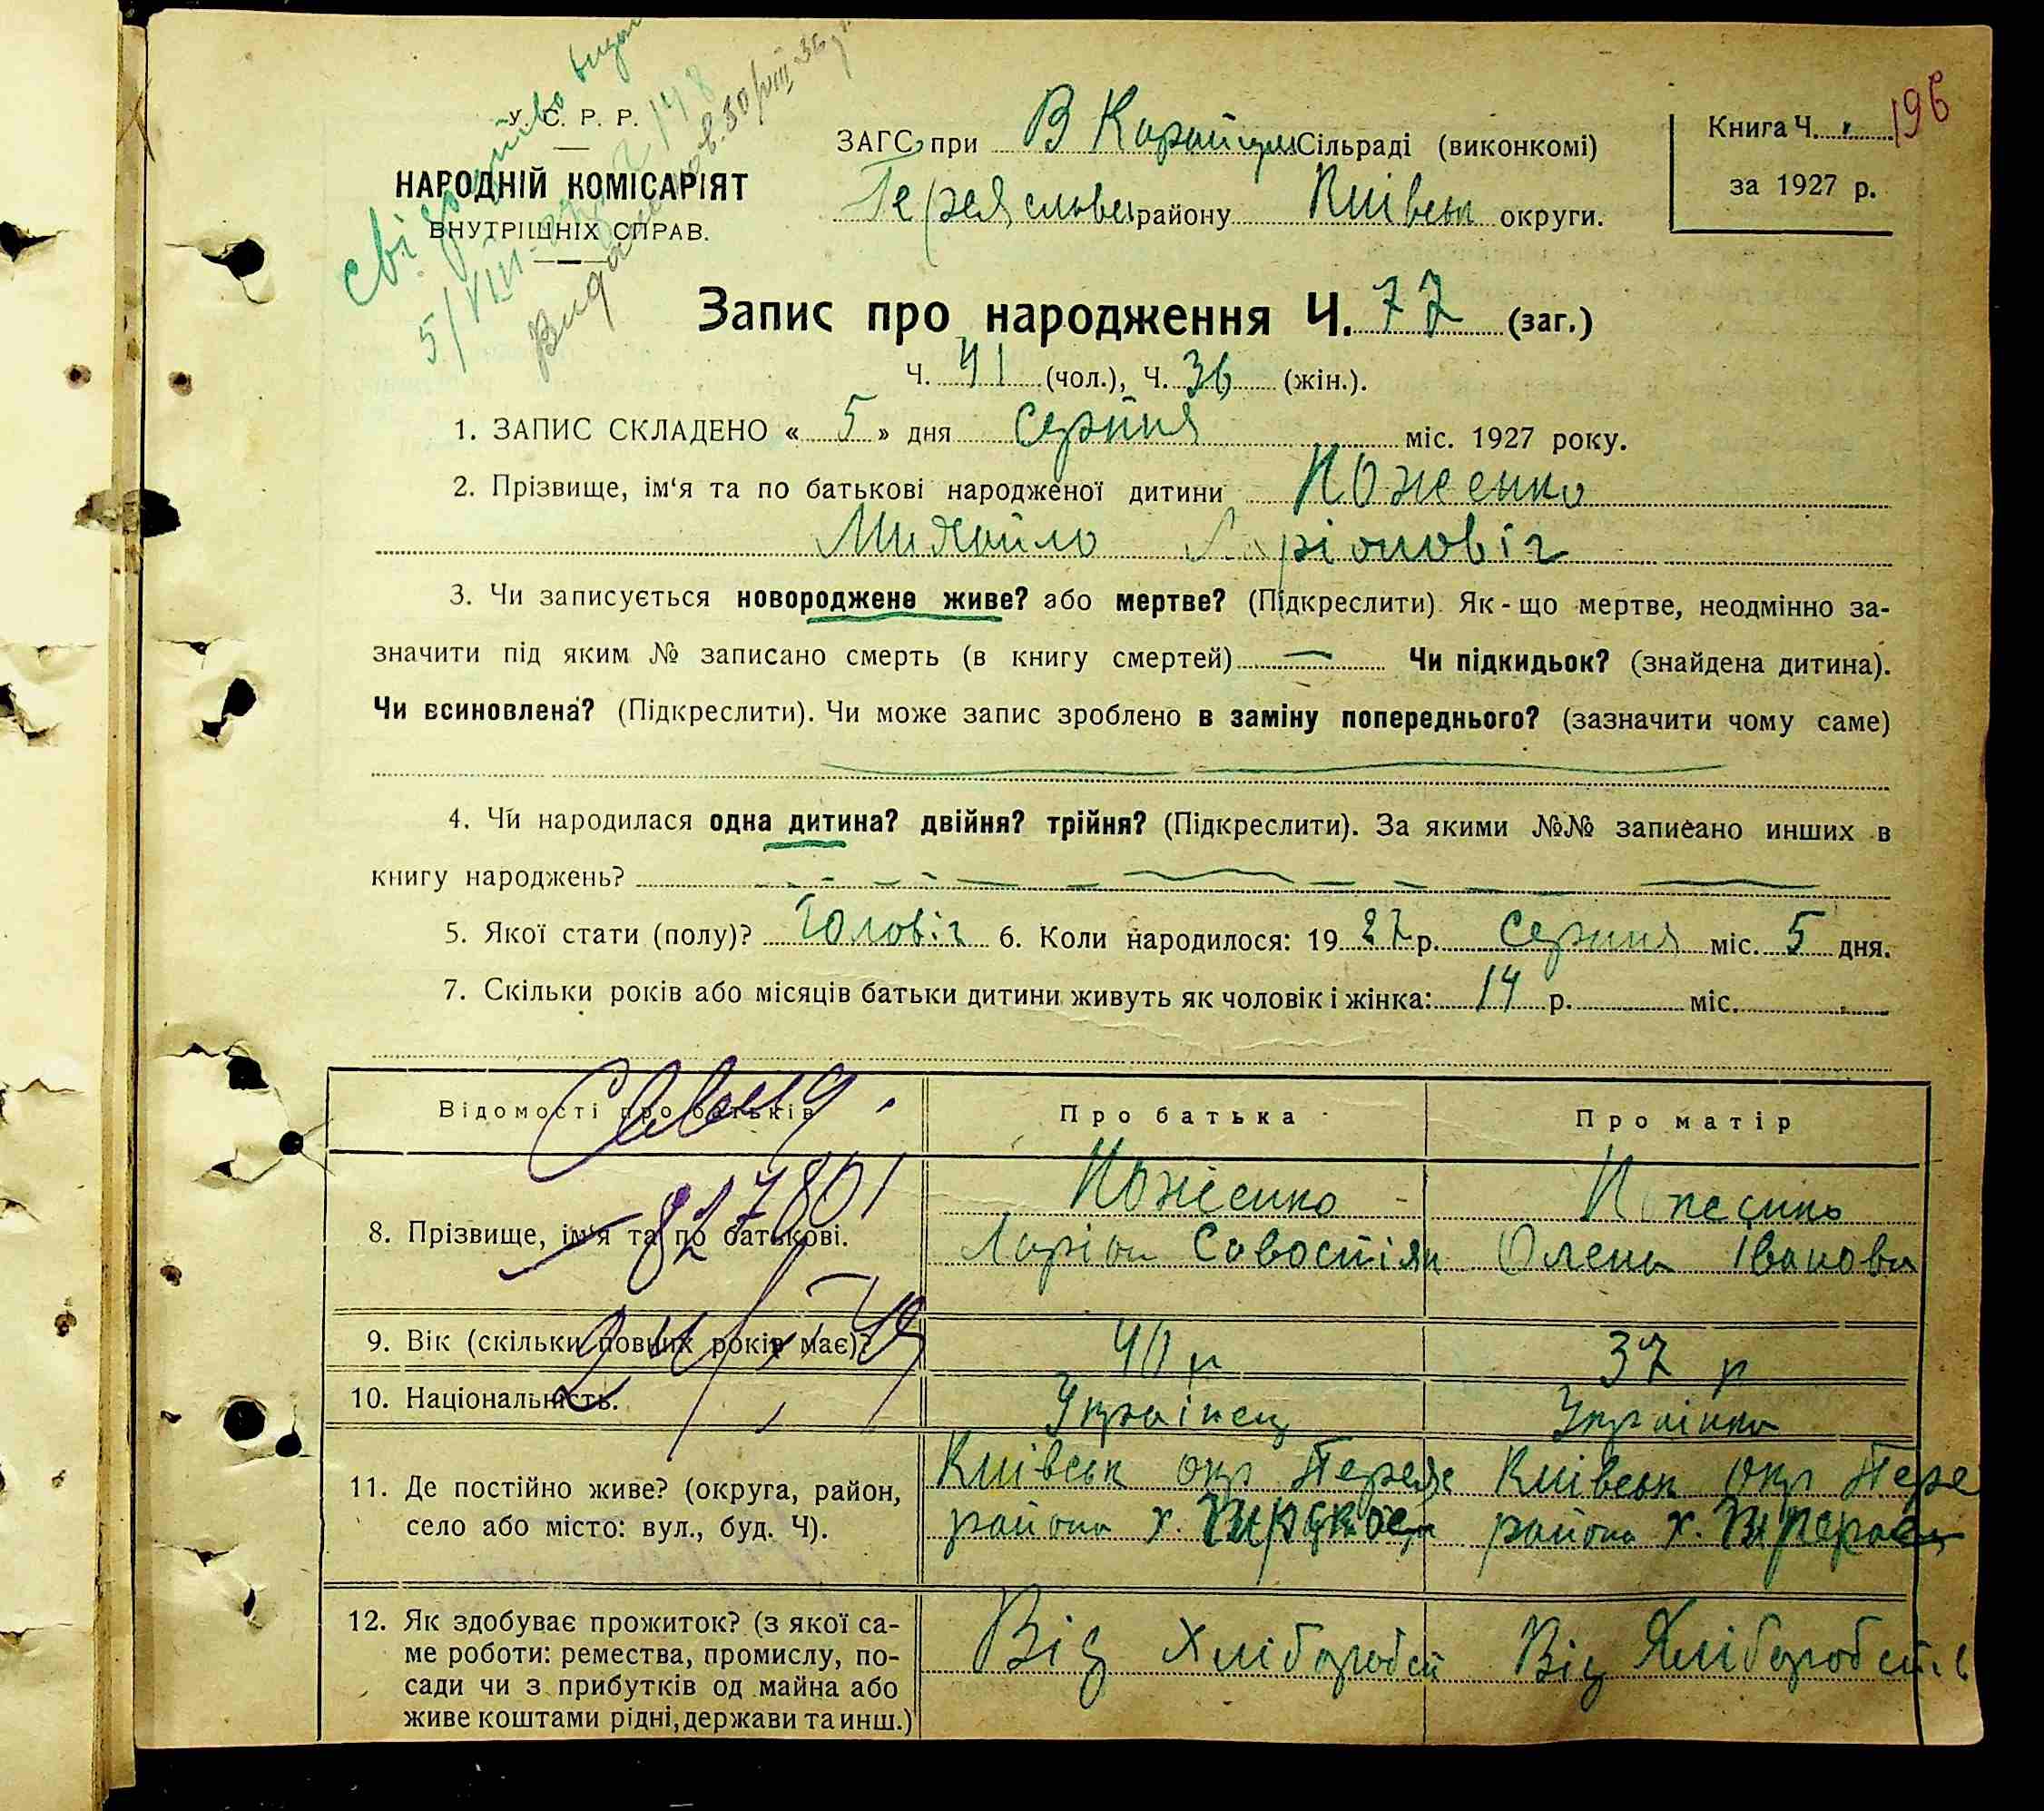 У. С. Р. Р.
НАРОДНІЙ КОМІСАРІЯТ
ВНУТРІШНІХ СПРАВ.
ЗАГС при В Каратул Сільраді (виконкомі)
Переяславськ району Київськ округи.
Книга Ч. 196
за 1927 р.
Запис про народження Ч. 77 (заг.)
Ч. 41 (чол.), Ч. 36 (жін.).
1. ЗАПИС СКЛАДЕНО « 5 » дня Серпня міс. 1927 року.
2. Прізвище, ім'я та по батькові народженої дитиниНоженко
Михайло Ларіоновіч
3. Чи записується новороджене живе? або мертве? (Підкреслити). Як-що мертве, неодмінно за-
значити під яким № записано смерть (в книгу смертей) — Чи підкидьок? (знайдена дитина).
Чи всиновлена? (Підкреслити). Чи може запис зроблено в заміну попереднього? (зазначити чому саме)
4. Чи народилася одна дитина? двійня? трійня? (Підкреслити). За якими №№ записано инших в
книгу народжень?
5. Якої стати (полу)? Чоловіч 6. Коли народилося: 1927 р. Серпня міс. 5 дня.
7. Скільки років або місяців батьки дитини живуть як чоловік і жінка: 14 р. міс.
Відомості про батьків Про батька Про матір
827801
8. Прізвище, ім'я та по батькові. Ноженко Ноженко
Ларіон Савостіян Олена Іванова
9. Вік (скільки повних років має)? 40 р 37 р
10. Національність. Українец Українка
11. Де постійно живе? (округа, район, Київськ окр Переяс Київськ окр Пере
село або місто: вул., буд. Ч). района х. района х.
12. Як здобуває прожиток? (з якої са- Від Хліборобст Від Хліборобств
ме роботи: ремества, промислу, по-
сади чи з прибутків од майна або
живе коштами рідні, держави та инш.)